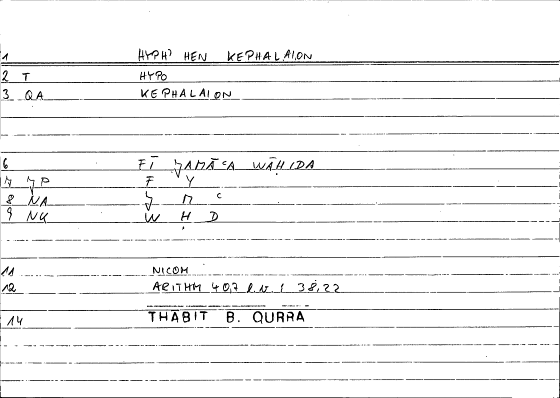 1 HYPH' HEN KEPHALAION
2 T HYPO
3 QA KEPHALAION
6 FĪ ǦAMĀʿA WĀḤIDA
7 ǦP F Y
8 NA Ǧ M ʿ
9 NU W Ḥ D
11 NICOM
12 ARITHM 40,7 38,22
14 THABIT B. QURRA